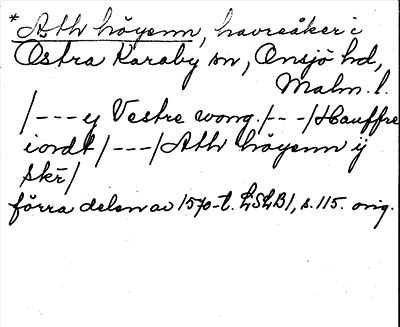 * Ath höyenn, havreåker i
Östra Karaby sn, Onsjö hd,
Malm. l.
/---y Vestre wong. /---/ Hauffre
iordt /---/ Ath höyenn ÿ
skr̄/
förra delen av 1570-t. LSLB1, s. 115. orig.